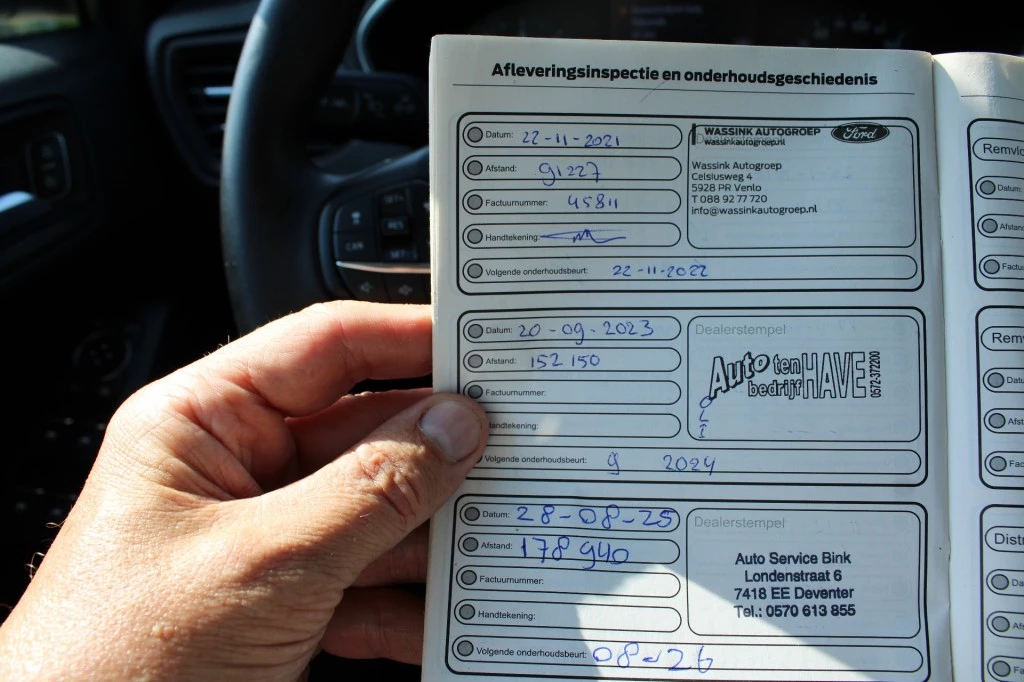 Afleveringsinspectie en onderhoudsgeschiedenis
Datum: 22-11-2021
Afstand: 91227
Factuurnummer: 45811
Handtekening:
Volgende onderhoudsbeurt: 22-11-2022
WASSINK AUTOGROEP Ford
wassinkautogroep.nl
Wassink Autogroep
Celsiusweg 4
5928 PR Venlo
T 088 92 77 720
info@wassinkautogroep.nl
Datum: 20-09-2023
Afstand: 152 150
Factuurnummer:
andtekening:
Volgende onderhoudsbeurt: 9 2024
Dealerstempel
Auto ten HAVE
bedrijf
0572-372200
OLI
Datum: 28-08-25
Afstand: 178 940
Factuurnummer:
Handtekening:
Volgende onderhoudsbeurt: 08-26
Dealerstempel
Auto Service Bink
Londenstraat 6
7418 EE Deventer
Tel.: 0570 613 855
Remvlo
Datum:
Afstan
Factu
Remv
Datu
Afst
Fac
Distri
Da
Afs
Fa
CAN
RES